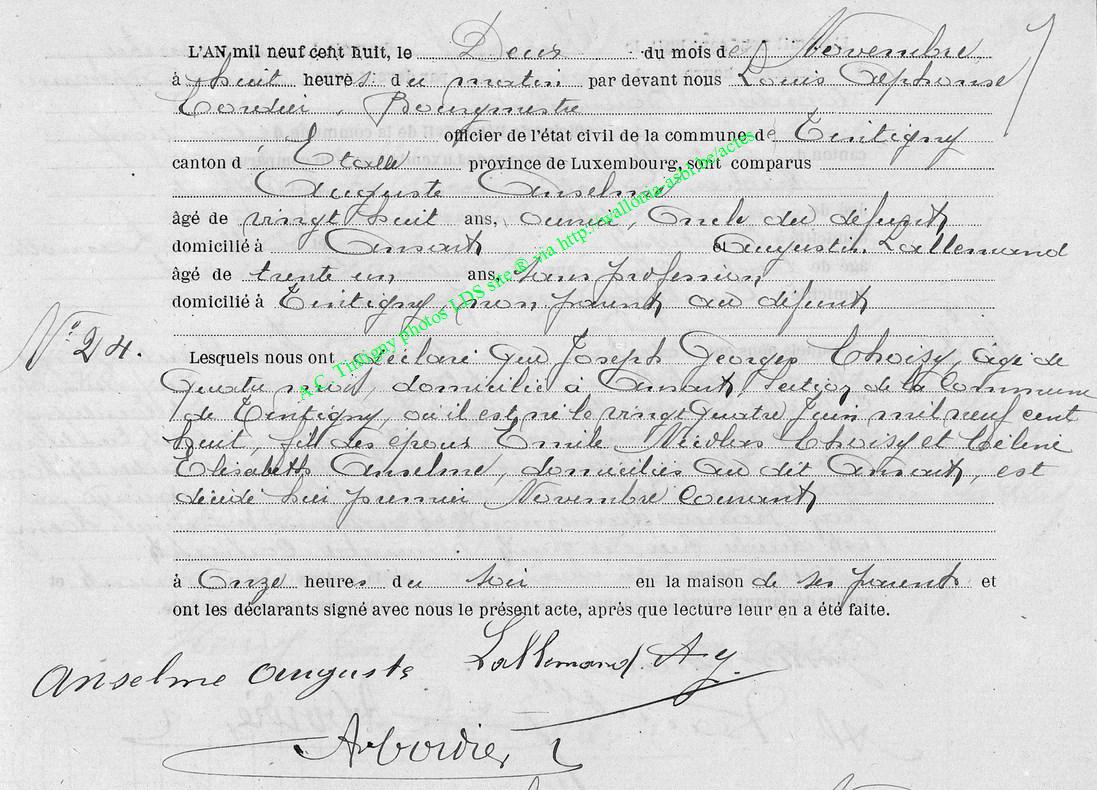 L'AN mil neuf cent huit, le Deux du mois de Novembre
à huit heures du matin par devant nous Louis Alphonse
Cordier, Bourgmestre
officier de l'état civil de la commune de Tintigny
canton d'Etalle province de Luxembourg, sont comparus
Auguste Anselme
âgé de vingt huit ans, oncle du défunt,
domicilié à Ansart et Augustin Lallemand
âgé de trente un ans, sans profession
domicilié à Tintigny, non parent au défunt,
N° 24.
Lesquels nous ont déclaré que Joseph Georges Choisy, âgé de
quatre mois, domicilié à Ansart, section de la Commune
de Tintigny, où il est né le vingt quatre Juin mil neuf cent
huit, fils des époux Emile Nicolas Choisy et Céline
Elisabeth Anselme, domiciliés au dit Ansart, est
décédé hier premier Novembre Courant,
à Onze heures du soir en la maison de ses parents et
ont les déclarants signé avec nous le présent acte, après que lecture leur en a été faite.
Anselme Auguste Lallemand Ag
A Cordier
A.C. Tintigny photos LDS site ® via http://wallonia-asbl.be/actes